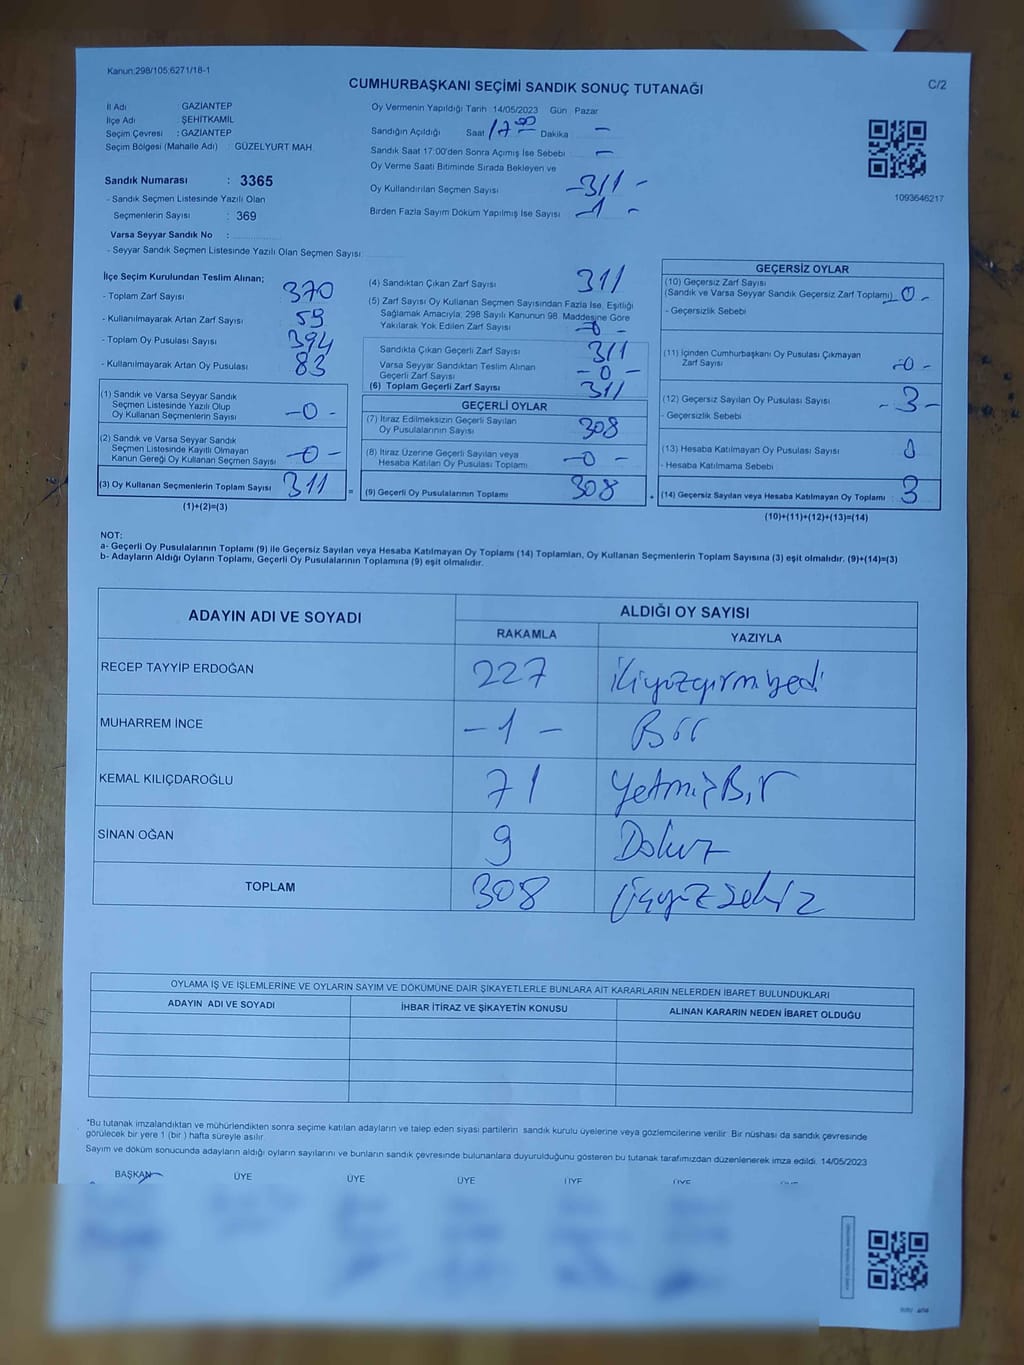 Kanun:298/105;6271/18-1
C/2
CUMHURBAŞKANI SEÇİMİ SANDIK SONUÇ TUTANAĞI
İl Adı : GAZİANTEP
İlçe Adı : ŞEHİTKAMİL
Seçim Çevresi : GAZİANTEP
Seçim Bölgesi (Mahalle Adı) : GÜZELYURT MAH.
Sandık Numarası : 3365
- Sandık Seçmen Listesinde Yazılı Olan
Seçmenlerin Sayısı : 369
Varsa Seyyar Sandık No :
- Seyyar Sandık Seçmen Listesinde Yazılı Olan Seçmen Sayısı
Oy Vermenin Yapıldığı Tarih 14/05/2023 Gün : Pazar
Sandığın Açıldığı Saat 17:00 Dakika –
Sandık Saat 17:00'den Sonra Açımış İse Sebebi : –
Oy Verme Saati Bitiminde Sırada Bekleyen ve
Oy Kullandırılan Seçmen Sayısı -311-
Birden Fazla Sayım Döküm Yapılmış İse Sayısı -1-
1093646217
İlçe Seçim Kurulundan Teslim Alınan;
- Toplam Zarf Sayısı 370
- Kullanılmayarak Artan Zarf Sayısı 59
- Toplam Oy Pusulası Sayısı 394
- Kullanılmayarak Artan Oy Pusulası 83
(1) Sandık ve Varsa Seyyar Sandık
Seçmen Listesinde Yazılı Olup
Oy Kullanan Seçmenlerin Sayısı -0-
(2) Sandık ve Varsa Seyyar Sandık
Seçmen Listesinde Kayıtlı Olmayan
Kanun Gereği Oy Kullanan Seçmen Sayısı -0-
(3) Oy Kullanan Seçmenlerin Toplam Sayısı 311
(1)+(2)=(3)
=
(4) Sandıktan Çıkan Zarf Sayısı 311
(5) Zarf Sayısı Oy Kullanan Seçmen Sayısından Fazla İse, Eşitliği
Sağlamak Amacıyla, 298 Sayılı Kanunun 98. Maddesine Göre
Yakılarak Yok Edilen Zarf Sayısı -0-
Sandıkta Çıkan Geçerli Zarf Sayısı 311
Varsa Seyyar Sandıktan Teslim Alınan
Geçerli Zarf Sayısı -0-
(6) Toplam Geçerli Zarf Sayısı 311
GEÇERLİ OYLAR
(7) İtiraz Edilmeksizin Geçerli Sayılan
Oy Pusulalarının Sayısı 308
(8) İtiraz Üzerine Geçerli Sayılan veya
Hesaba Katılan Oy Pusulası Toplamı -0-
(9) Geçerli Oy Pusulalarının Toplamı 308
GEÇERSİZ OYLAR
(10) Geçersiz Zarf Sayısı
(Sandık ve Varsa Seyyar Sandık Geçersiz Zarf Toplamı) -0-
- Geçersizlik Sebebi
(11) İçinden Cumhurbaşkanı Oy Pusulası Çıkmayan
Zarf Sayısı -0-
(12) Geçersiz Sayılan Oy Pusulası Sayısı -3-
- Geçersizlik Sebebi
(13) Hesaba Katılmayan Oy Pusulası Sayısı 0
- Hesaba Katılmama Sebebi
(14) Geçersiz Sayılan veya Hesaba Katılmayan Oy Toplamı : 3
(10)+(11)+(12)+(13)=(14)
NOT:
a- Geçerli Oy Pusulalarının Toplamı (9) ile Geçersiz Sayılan veya Hesaba Katılmayan Oy Toplamı (14) Toplamları, Oy Kullanan Seçmenlerin Toplam Sayısına (3) eşit olmalıdır. (9)+(14)=(3)
b- Adayların Aldığı Oyların Toplamı, Geçerli Oy Pusulalarının Toplamına (9) eşit olmalıdır.
ADAYIN ADI VE SOYADI ALDIĞI OY SAYISI
RAKAMLA YAZIYLA
RECEP TAYYİP ERDOĞAN 227 ikiyüzyirmiyedi
MUHARREM İNCE -1- Bir
KEMAL KILIÇDAROĞLU 71 YetmişBir
SİNAN OĞAN 9 Dokuz
TOPLAM 308 Üçyüzsekiz
OYLAMA İŞ VE İŞLEMLERİNE VE OYLARIN SAYIM VE DÖKÜMÜNE DAİR ŞİKAYETLERLE BUNLARA AİT KARARLARIN NELERDEN İBARET BULUNDUKLARI
ADAYIN ADI VE SOYADI İHBAR İTİRAZ VE ŞİKAYETİN KONUSU ALINAN KARARIN NEDEN İBARET OLDUĞU
*Bu tutanak imzalandıktan ve mühürlendikten sonra seçime katılan adayların ve talep eden siyasi partilerin sandık kurulu üyelerine veya gözlemcilerine verilir. Bir nüshası da sandık çevresinde
görülecek bir yere 1 (bir) hafta süreyle asılır.
Sayım ve döküm sonucunda adayların aldığı oyların sayılarını ve bunların sandık çevresinde bulunanlara duyurulduğunu gösteren bu tutanak tarafımızdan düzenlenerek imza edildi. 14/05/2023
BAŞKAN ÜYE ÜYE ÜYE ÜYE ÜYE ÜYE